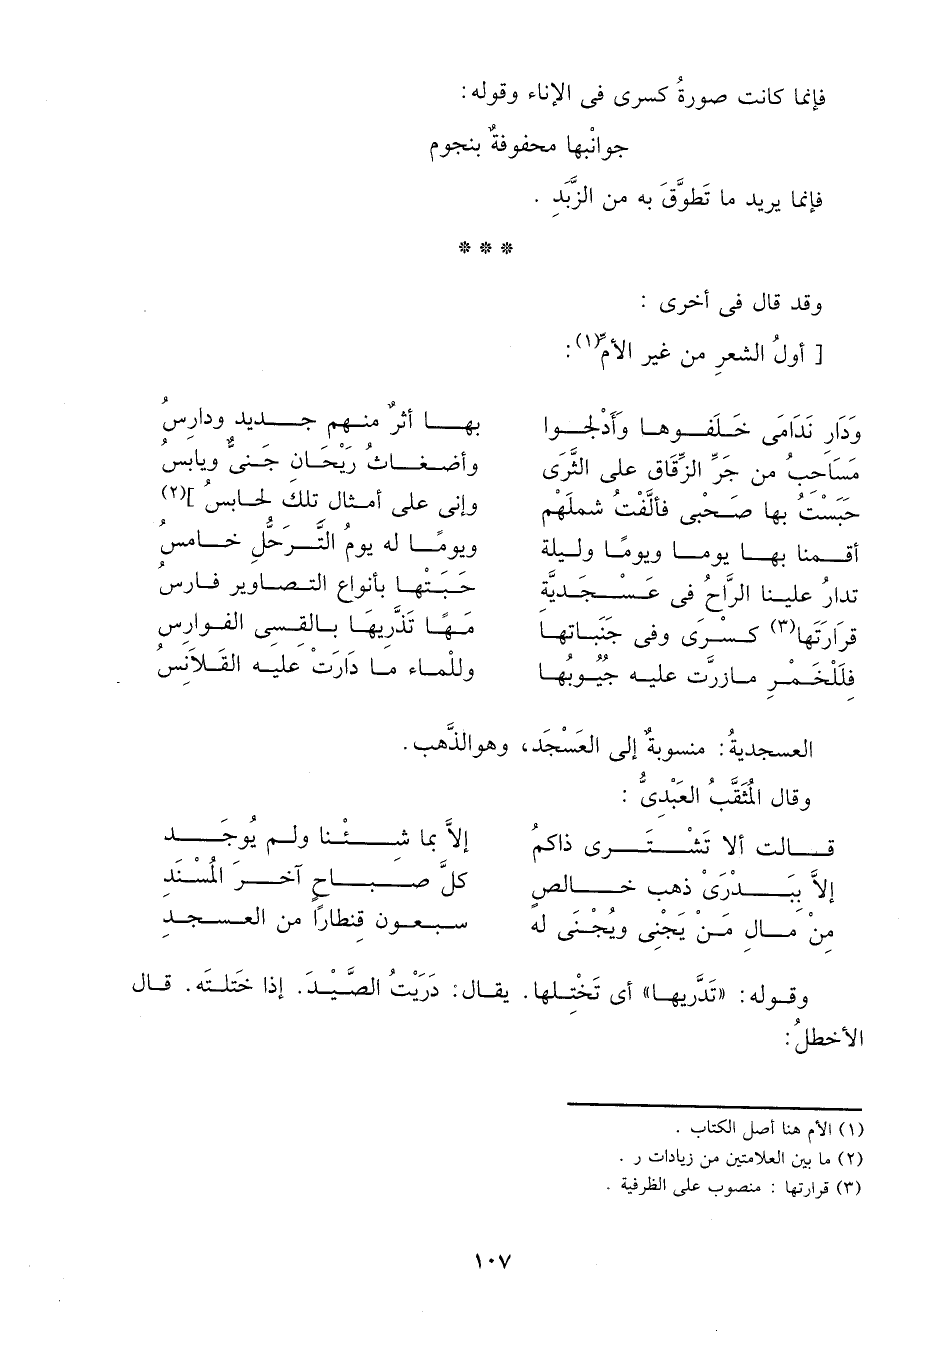 فإنما كانت صورةُ كسرى فى الإناء وقوله:
جوانْبها محفوفةٌ بنجوم
فإنما يريد ما تَطوَّقَ به من الزَّبَدِ .
* * *
وقد قال فى أخرى :
[ أولُ الشعرِ من غير الأمِّ(١):
ودَار نَدَامَى خَلَفوها وأَدْلجوا بها أثرٌ منهم جديد ودارسُ
مَسَاحبُ من جَرِّ الزِّقاق على الثَّرَى وأضغاثُ رَيْحَان جَنىٌّ ويابسُ
حَبَسْتُ بها صَحْبى فألَّفْتُ شملَهْم وإنى على أمثال تلك لحابسُ ](٢)
أقمنا بها يوما ويومًا وليلة ويومًا له يومُ التَّرحُّلِ خامسُ
تدارُ علينا الرَّاحُ فى عَسْجَديَّة حَبَتْها بأنواع التصاوير فارسُ
قرارَتَها(٣) كسْرَى وفى جَنَباتها مَهًا تَدَّريهَا بالقسى الفوارسُ
فلَلْخَمْرِ مازرَّت عليه جُيُوبُها وللماء ما دَارَتْ عليه القَلاَنسُ
العسجديةُ: منسوبةٌ إلى العَسْجَد، وهو الذَّهب.
وقال المُثَقَّبُ العَبْدىُّ :
قالت ألا تَشْتَرى ذاكمُ إلاَّ بما شئْنا ولم يُوجَد
إلاَّ بَبَدْرَىْ ذهب خالصٍ كلَّ صباحٍ آخرَ المُسْنَد
منْ مال مَنْ يَجْنى ويُجْنَى له سبعون قنطارًا من العسجد
وقوله: «تَدَّريها» أى تَخْتِلها. يقال: دَرَيْتُ الصَّيْدَ. إذا خَتَلتَه. قال
الأخطلُ:
(١) الأم هنا أصل الكتاب .
(٢) ما بين العلامتين من زيادات ر .
(٣) قرارتها : منصوب على الظرفية .
١٠٧